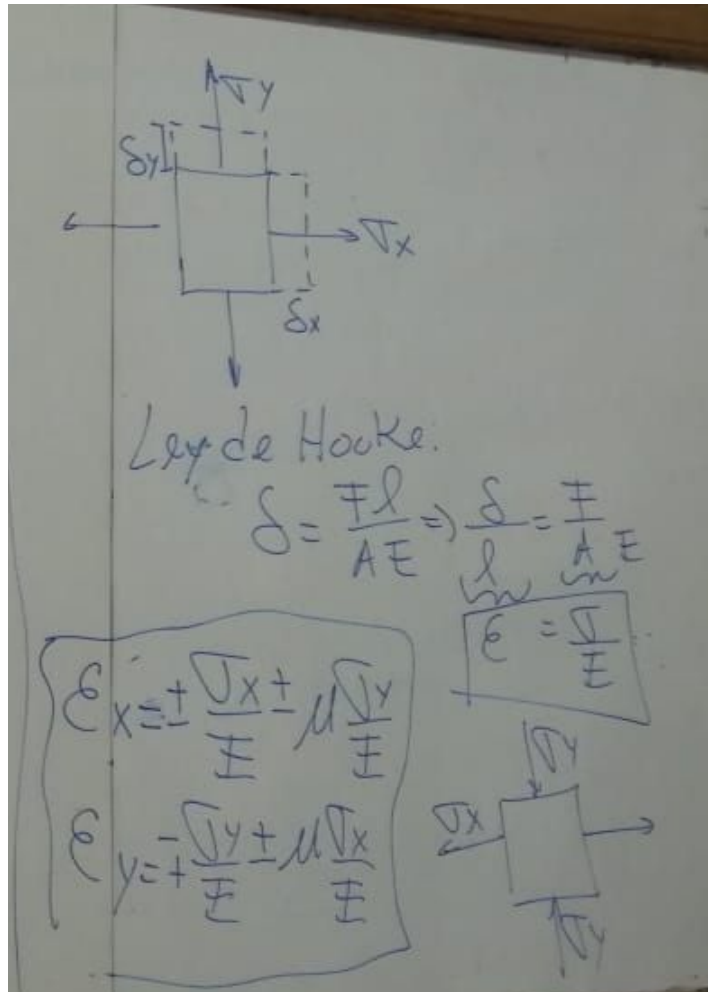 σy
δy
σx
δx
Ley de Hooke.
δ = Fl/AE => δ/l = F/A E
ε = σ/E
εx = ± σx/E ± μ σy/E
εy = ± σy/E ± μ σx/E
σy
σx
σy